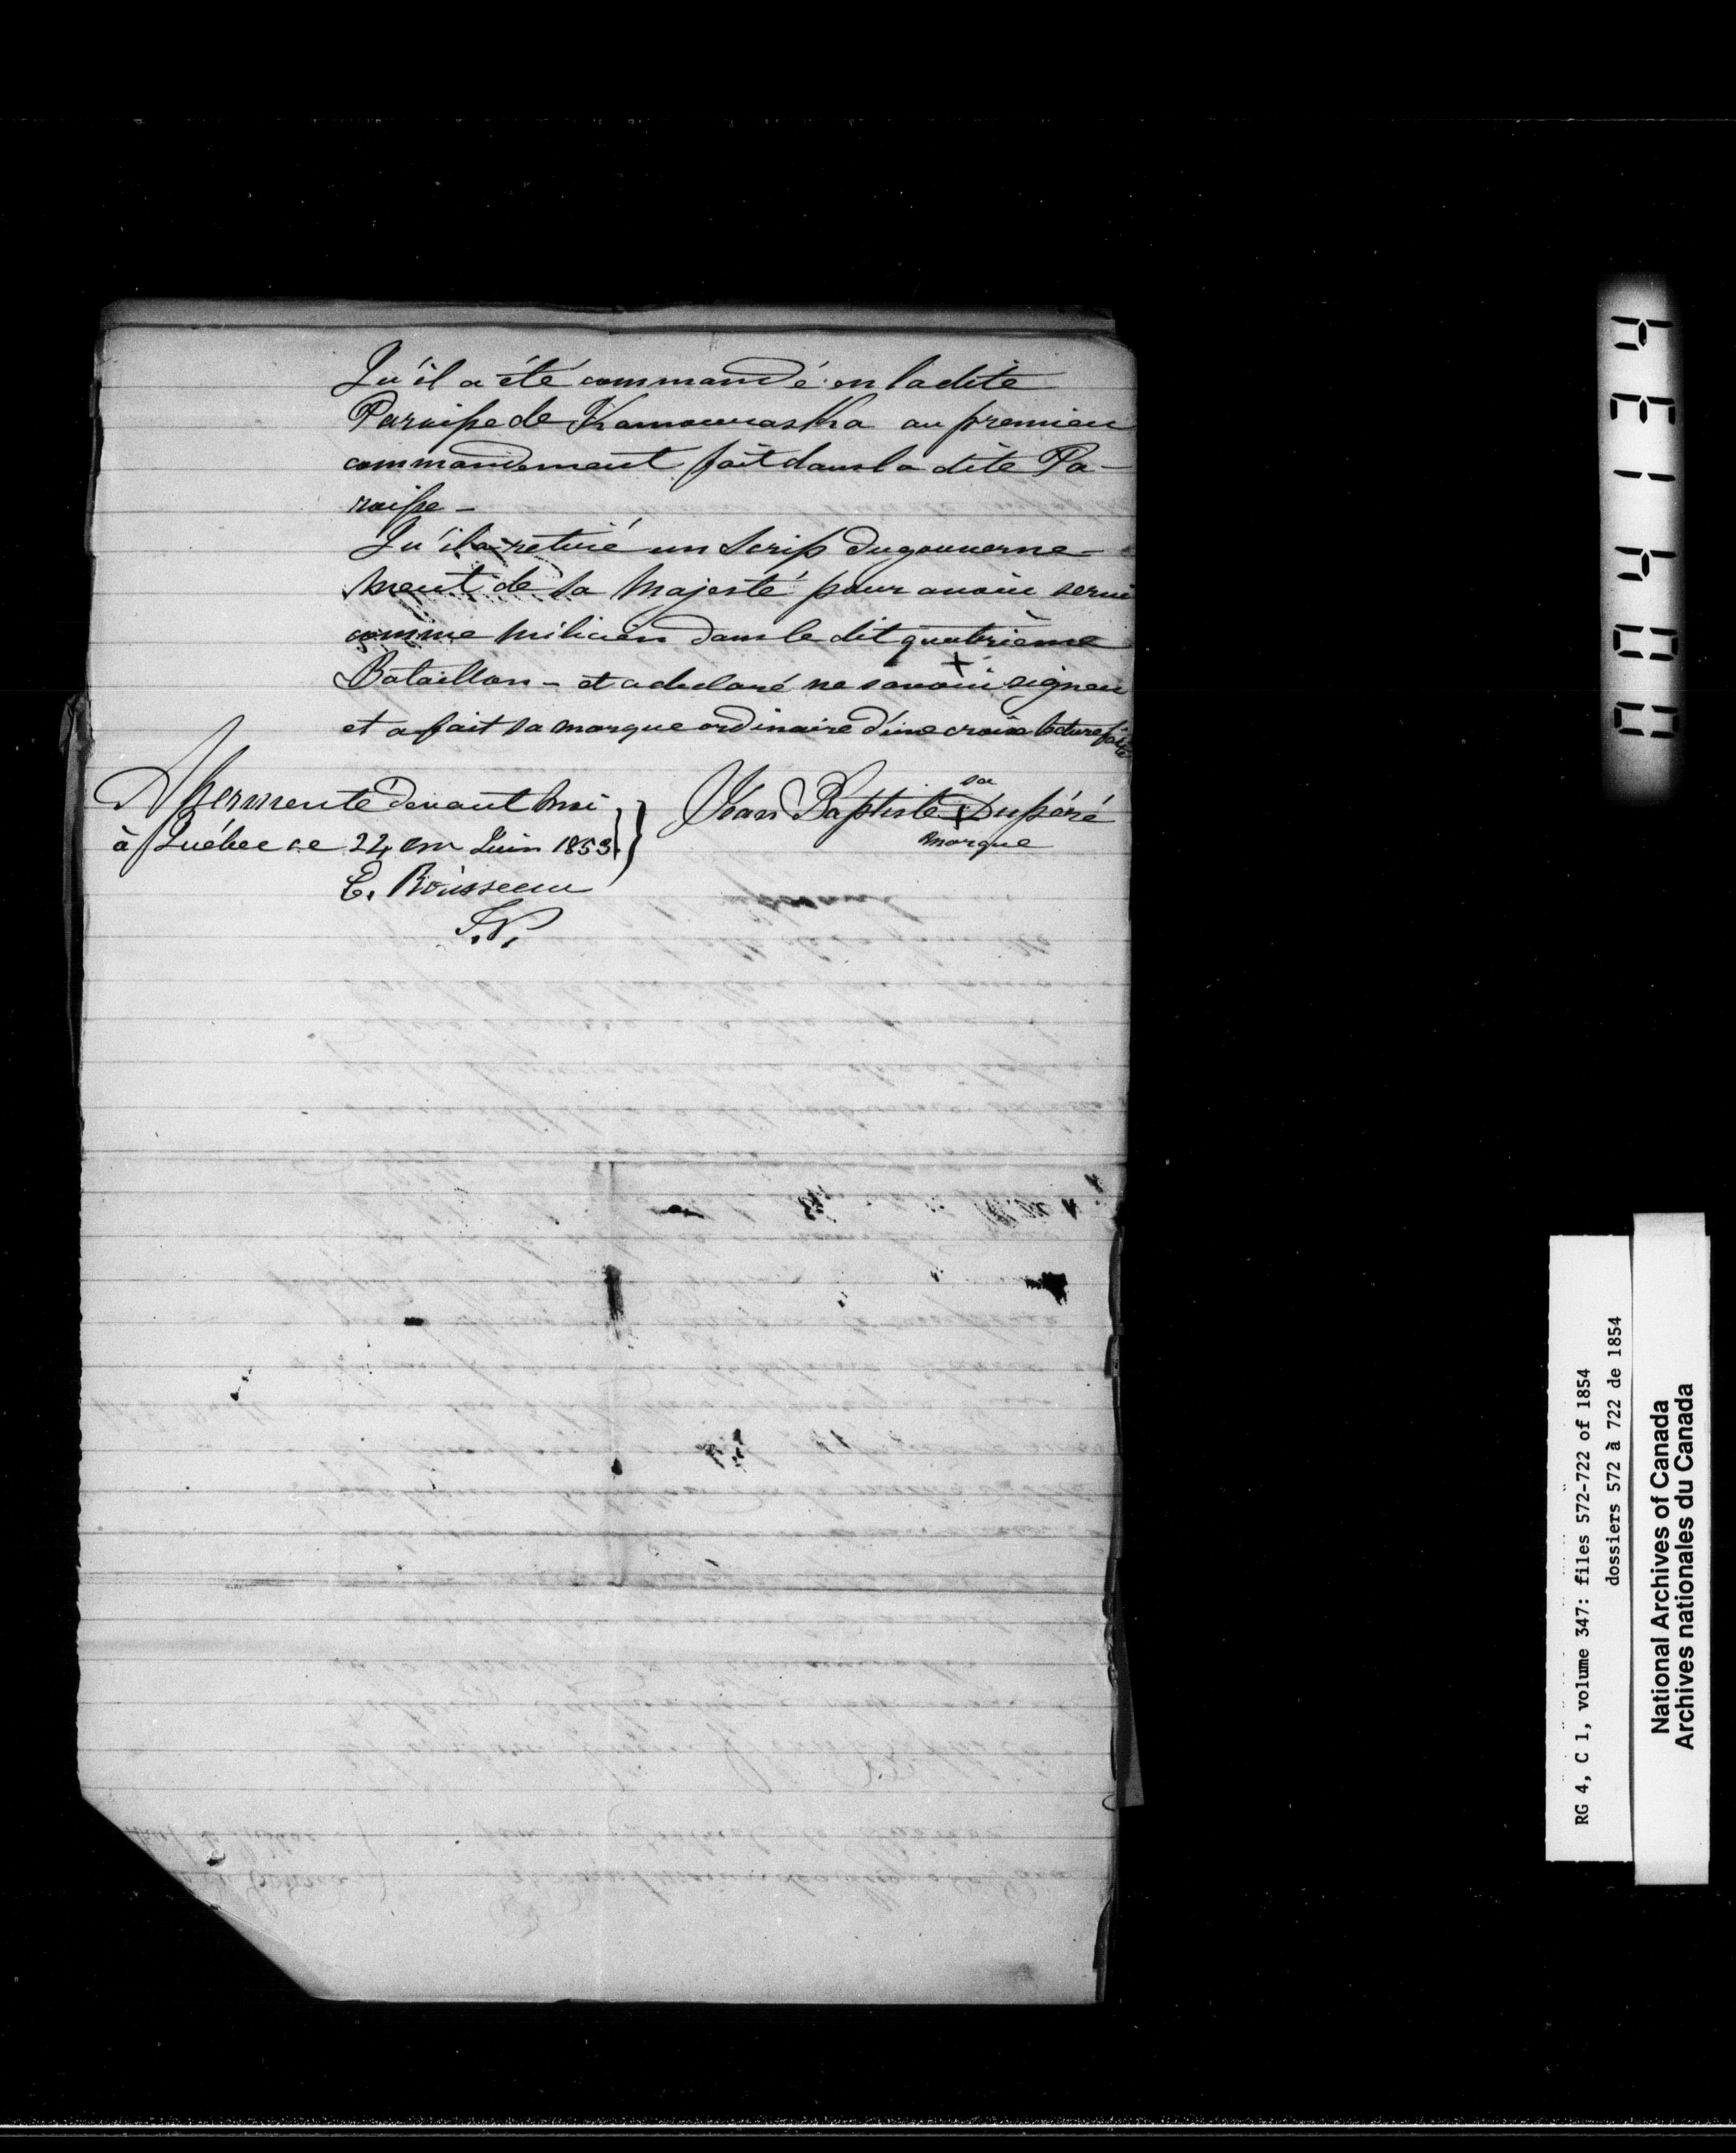 Qu'il a été commandé en la dite
Paroisse de Kamouraska au premier
commandement fait dans la dite Pa-
roisse -
Qu'il a retiré un Scrip du gouverne-
ment de Sa Majesté pour avoir servi
comme milicien dans le dit quatrième
Bataillon - et a déclaré ne savoir signer
et a fait sa marque ordinaire d'une croix lecture faite
Assermenté devant moi
à Québec ce 22 em Juin 1853.
E. Rousseau
J.P.
sa
Jean Baptiste + Dupéré
marque
0041314
RG 4, C 1, volume 347: files 572-722 of 1854
dossiers 572 à 722 de 1854
National Archives of Canada
Archives nationales du Canada